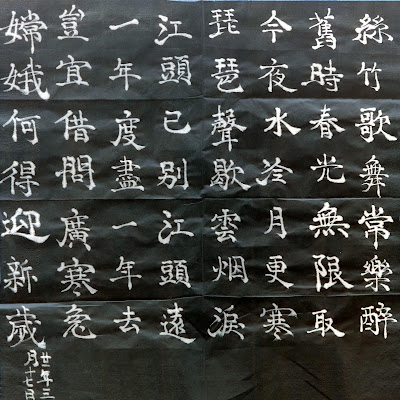 絲竹歌舞常樂醉
舊時春光無限取
今夜水冷月更寒
琵琶聲歇雲烟淚
江頭已别江頭遠
一年度盡一年去
豈宜借問廣寒兔
嫦娥何得迎新歲
廿一年三
月十七日